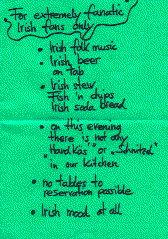 For extremely fanatic
Irish fans only
• Irish folk music
• Irish beer
on tap
• Irish stew
Fish 'n chips
Irish soda bread
• on this evening
there is not any
"Hand kas" or
in our kitchen
• no tables to
reservation possible
• Irish mood at all